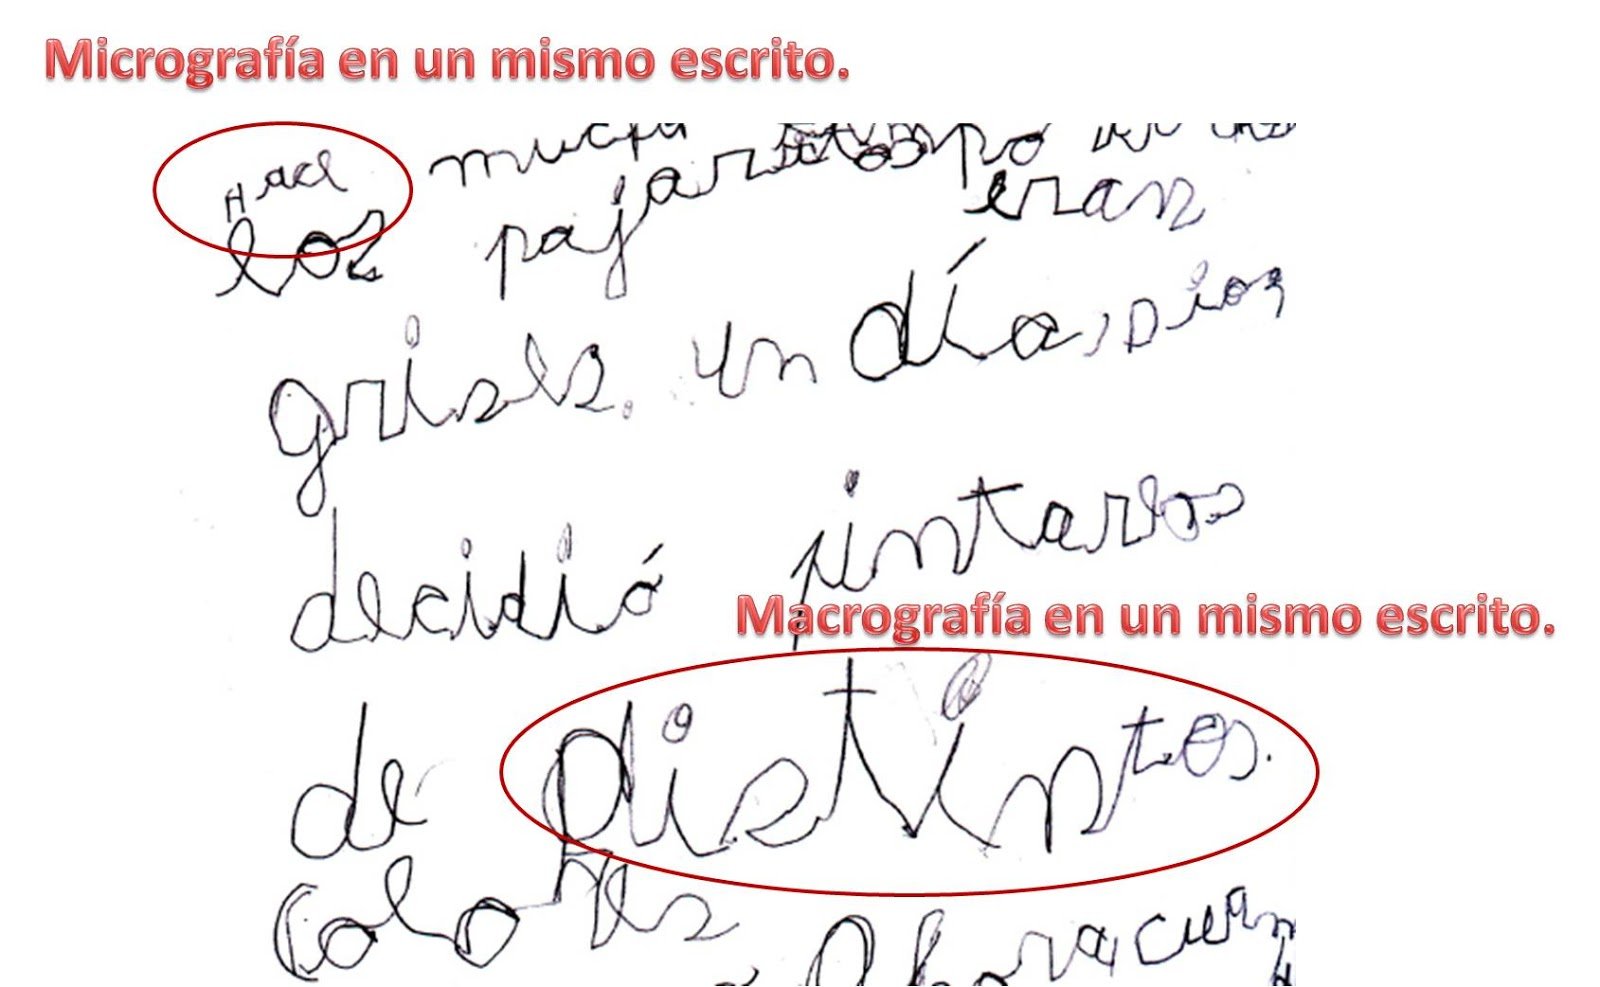 Micrografía en un mismo escrito.
Hace mucho tiempo
los pajaritos eran
grises. Un día, Dios
decidió pintarlos
Macrografía en un mismo escrito.
de distintos.
colores
Ahora